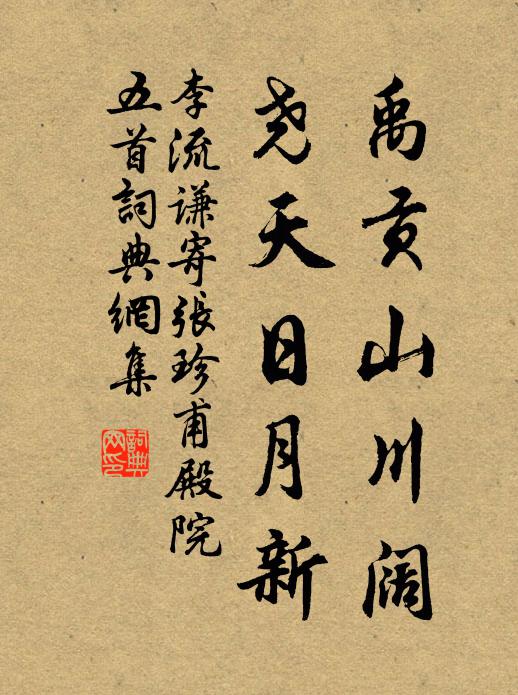 禹贡山川阔
尧天日月新
李流谦寄張珍甫殿院
五首詞典網集
詞典
网印